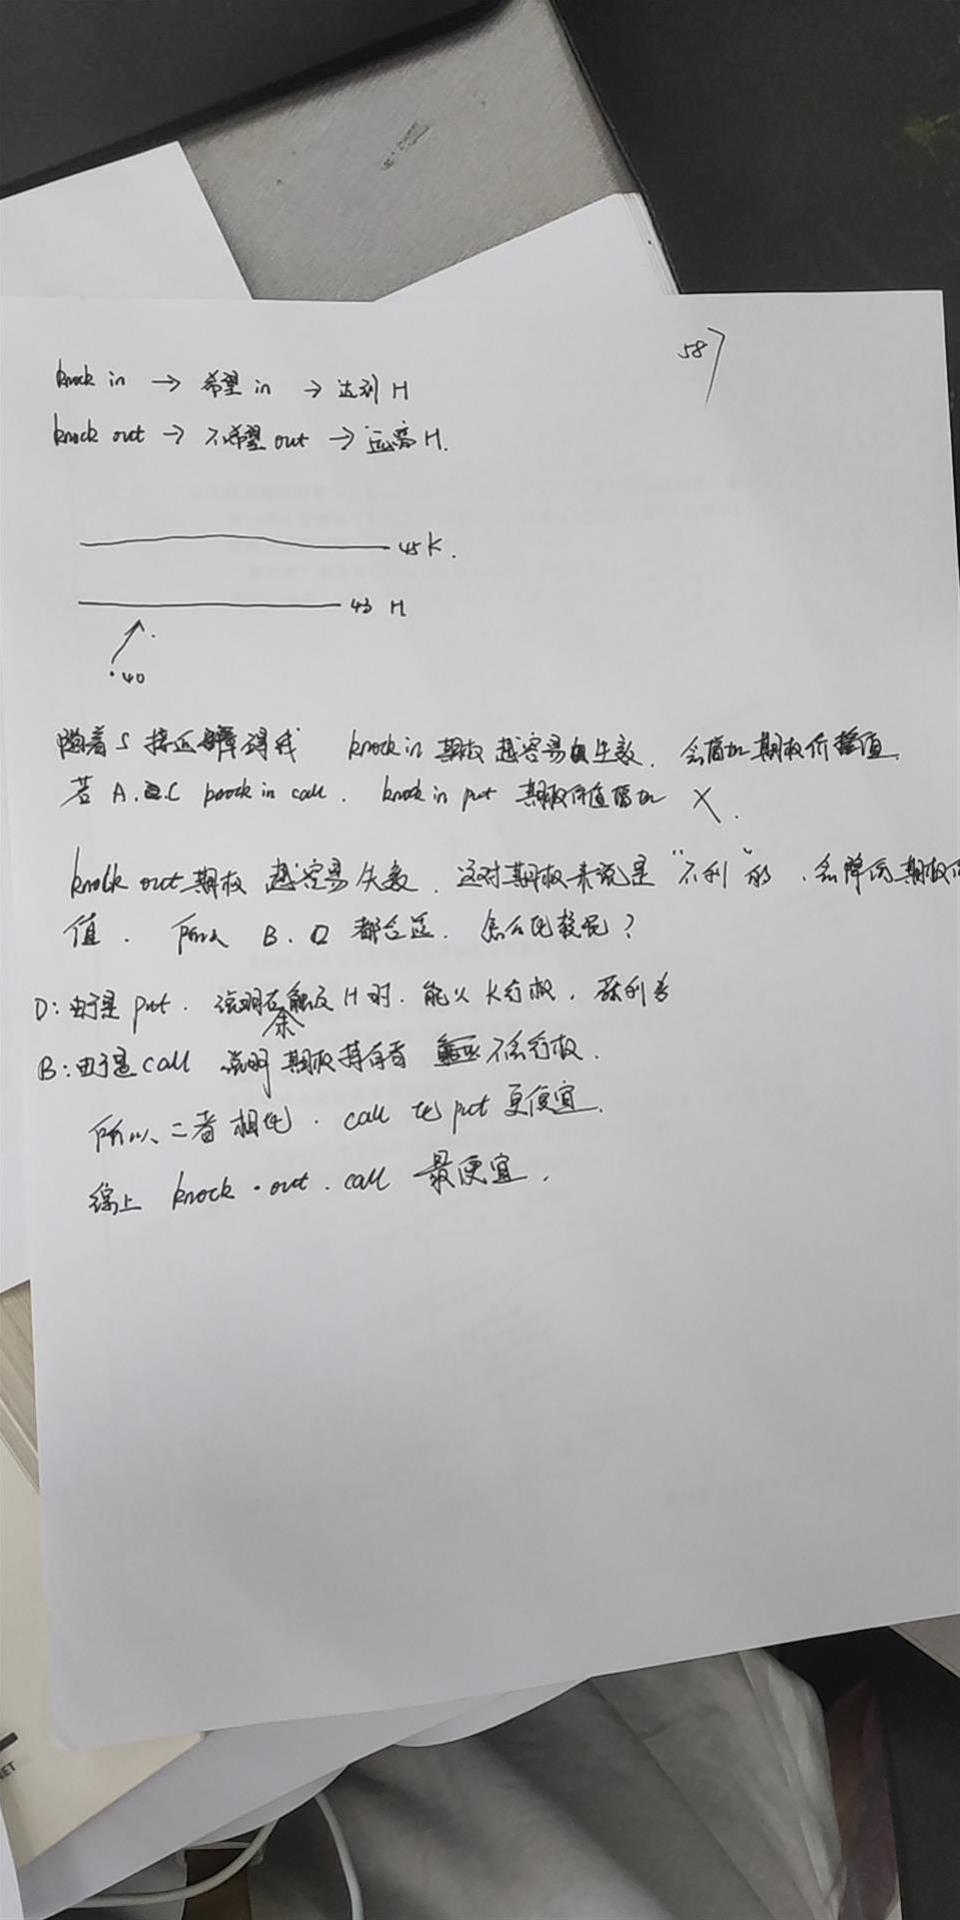 58
knock in → 希望 in → 达到 H
knock out → 不希望 out → 远离 H.
45 K.
43 H
40
随着 S 接近障碍线 knock in 期权 越容易生效. 会增加 期权价值
若 A. C knock in call. knock in put 期权价值增加 X.
knock out 期权 越容易 失效. 这对期权来说是 "不利" 的. 会降低期权价
值. 所以 B. D 都合适. 怎么比较呢?
D: 由于是 put. 说明在触及 H 时. 能以 K 行权.
B: 由于是 call 说明 期权持有者 不会行权.
所以、二者相比. call 比 put 更便宜.
综上 knock-out. call 最便宜.
NET